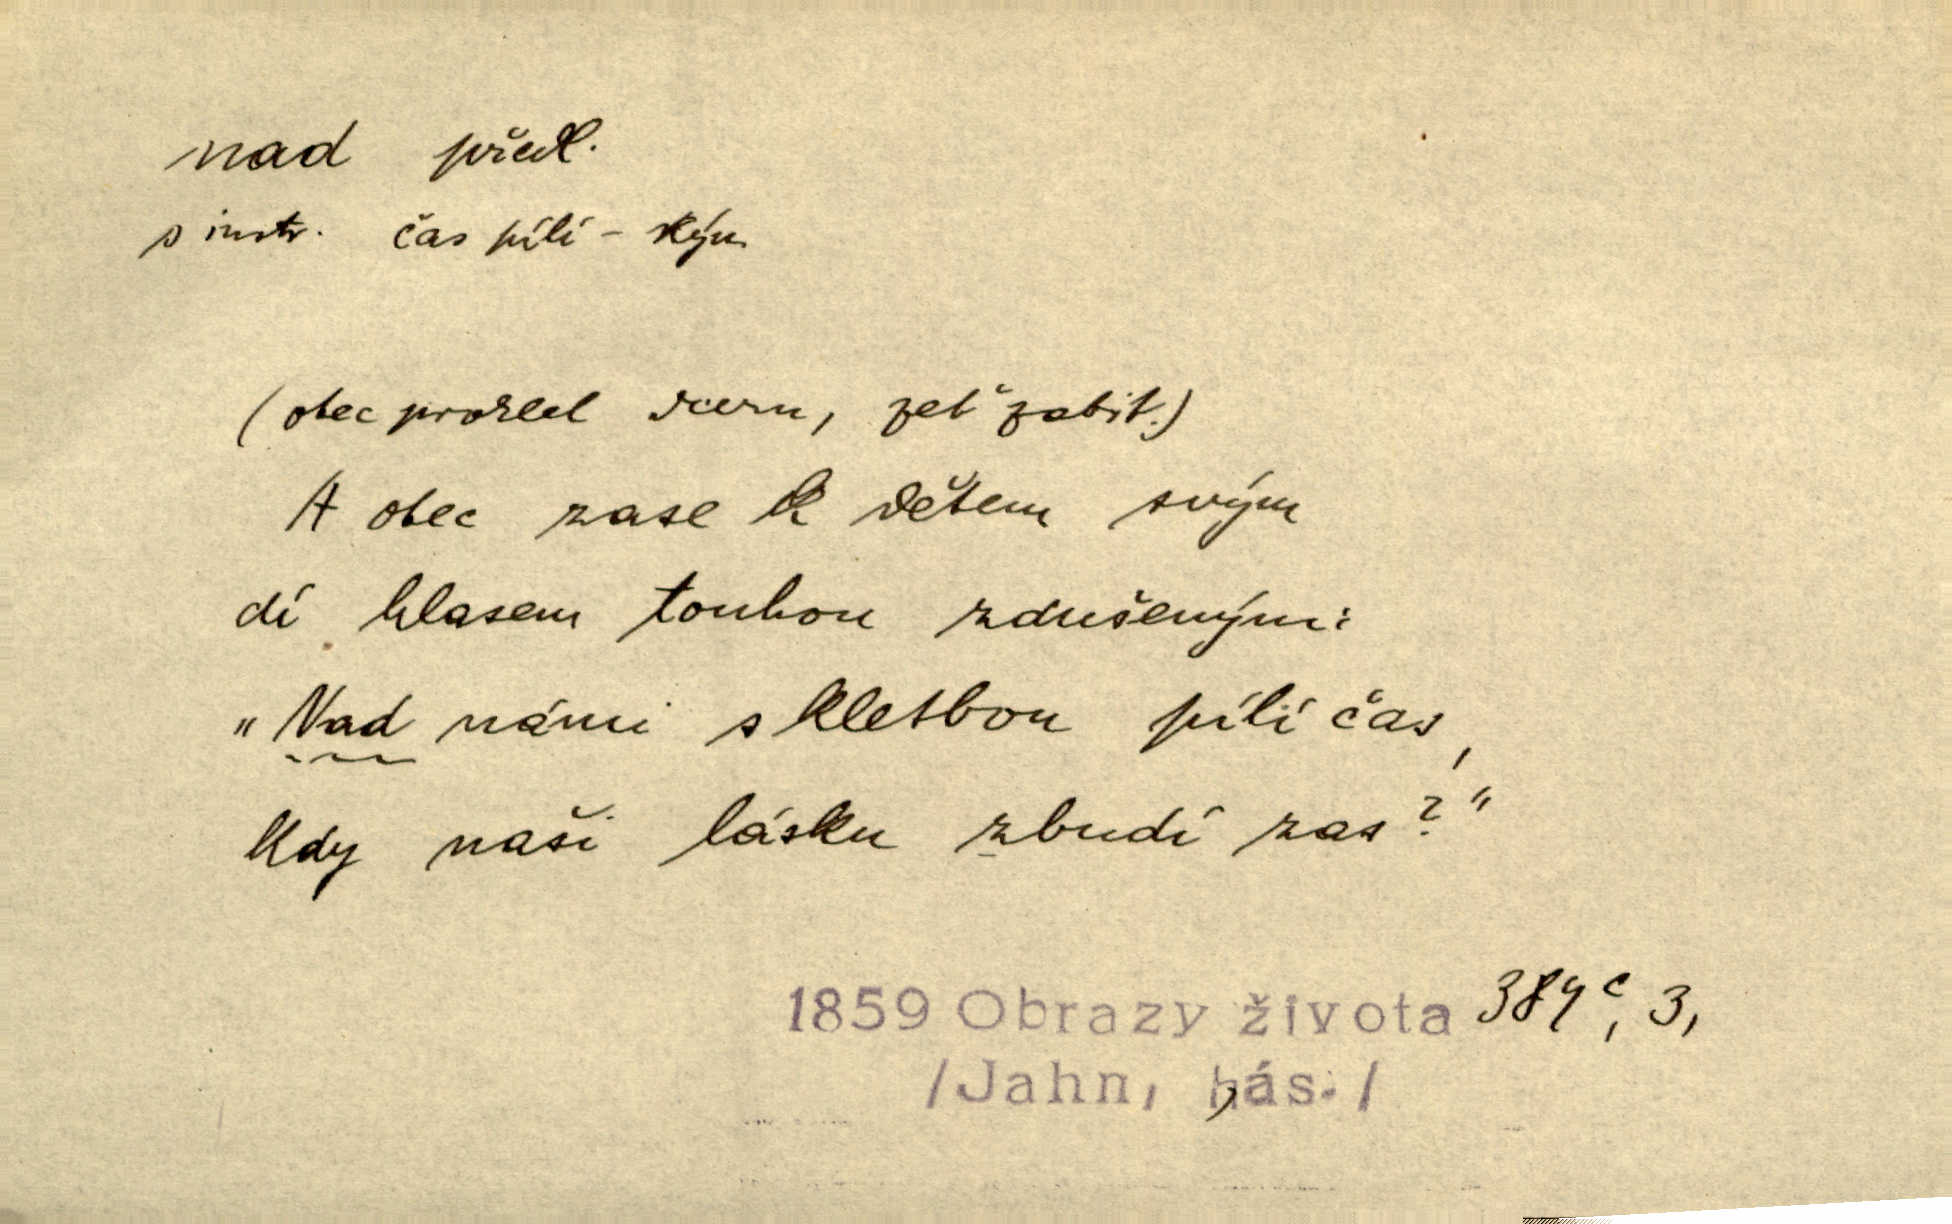 nad předl.
s instr. čas pílí - kým
(otec proklel dceru, zeť zabit.)
A otec zase k dětem svým
dí hlasem touhou zdušeným:
„Nad námi s kletbou pílí čas,
Kdy naši lásku zbudí zas?"
1859 Obrazy života 384 c, 3,
/Jahn, bás./